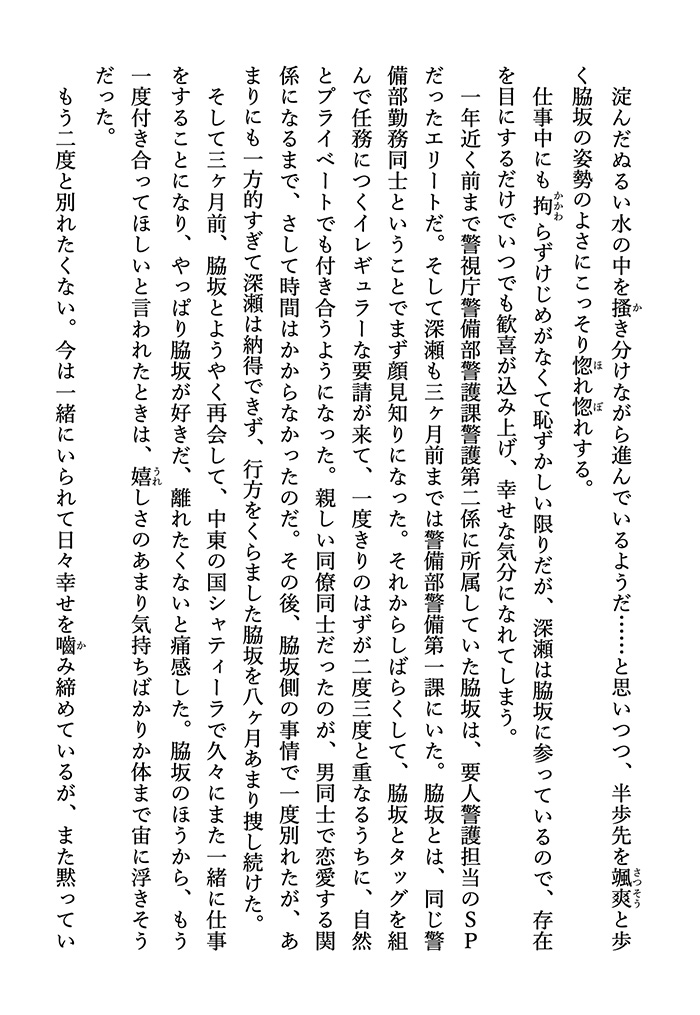 淀んだぬるい水の中を掻き分けながら進んでいるようだ……と思いつつ、半歩先を颯爽と歩
く脇坂の姿勢のよさにこっそり惚れ惚れする。
　仕事中にも拘らずけじめがなくて恥ずかしい限りだが、深瀬は脇坂に参っているので、存在
を目にするだけでいつでも歓喜が込み上げ、幸せな気分になれてしまう。
　一年近く前まで警視庁警備部警護課警護第二係に所属していた脇坂は、要人警護担当のＳＰ
だったエリートだ。そして深瀬も三ヶ月前までは警備部警備第一課にいた。脇坂とは、同じ警
備部勤務同士ということでまず顔見知りになった。それからしばらくして、脇坂とタッグを組
んで任務につくイレギュラーな要請が来て、一度きりのはずが二度三度と重なるうちに、自然
とプライベートでも付き合うようになった。親しい同僚同士だったのが、男同士で恋愛する関
係になるまで、さして時間はかからなかったのだ。その後、脇坂側の事情で一度別れたが、あ
まりにも一方的すぎて深瀬は納得できず、行方をくらました脇坂を八ヶ月あまり捜し続けた。
　そして三ヶ月前、脇坂とようやく再会して、中東の国シャティーラで久々にまた一緒に仕事
をすることになり、やっぱり脇坂が好きだ、離れたくないと痛感した。脇坂のほうから、もう
一度付き合ってほしいと言われたときは、嬉しさのあまり気持ちばかりか体まで宙に浮きそう
だった。
　もう二度と別れたくない。今は一緒にいられて日々幸せを嚙み締めているが、また黙ってい